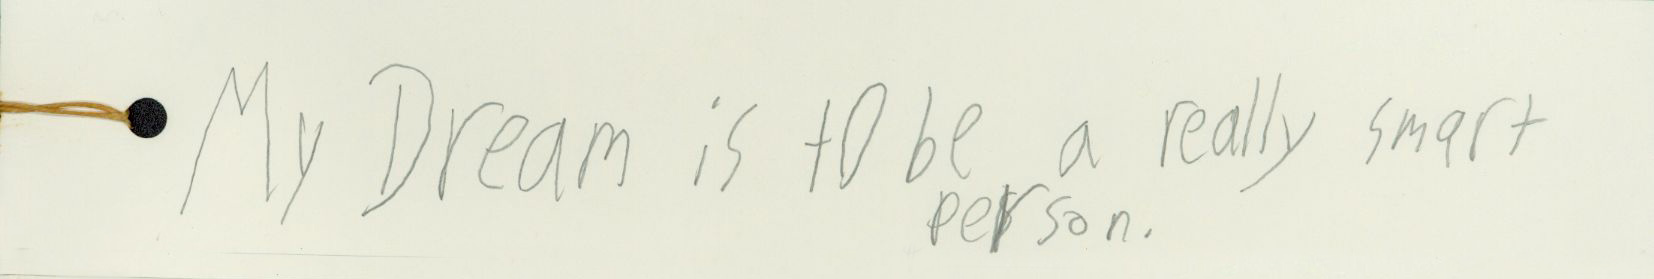 My Dream is to be a really smart
person.